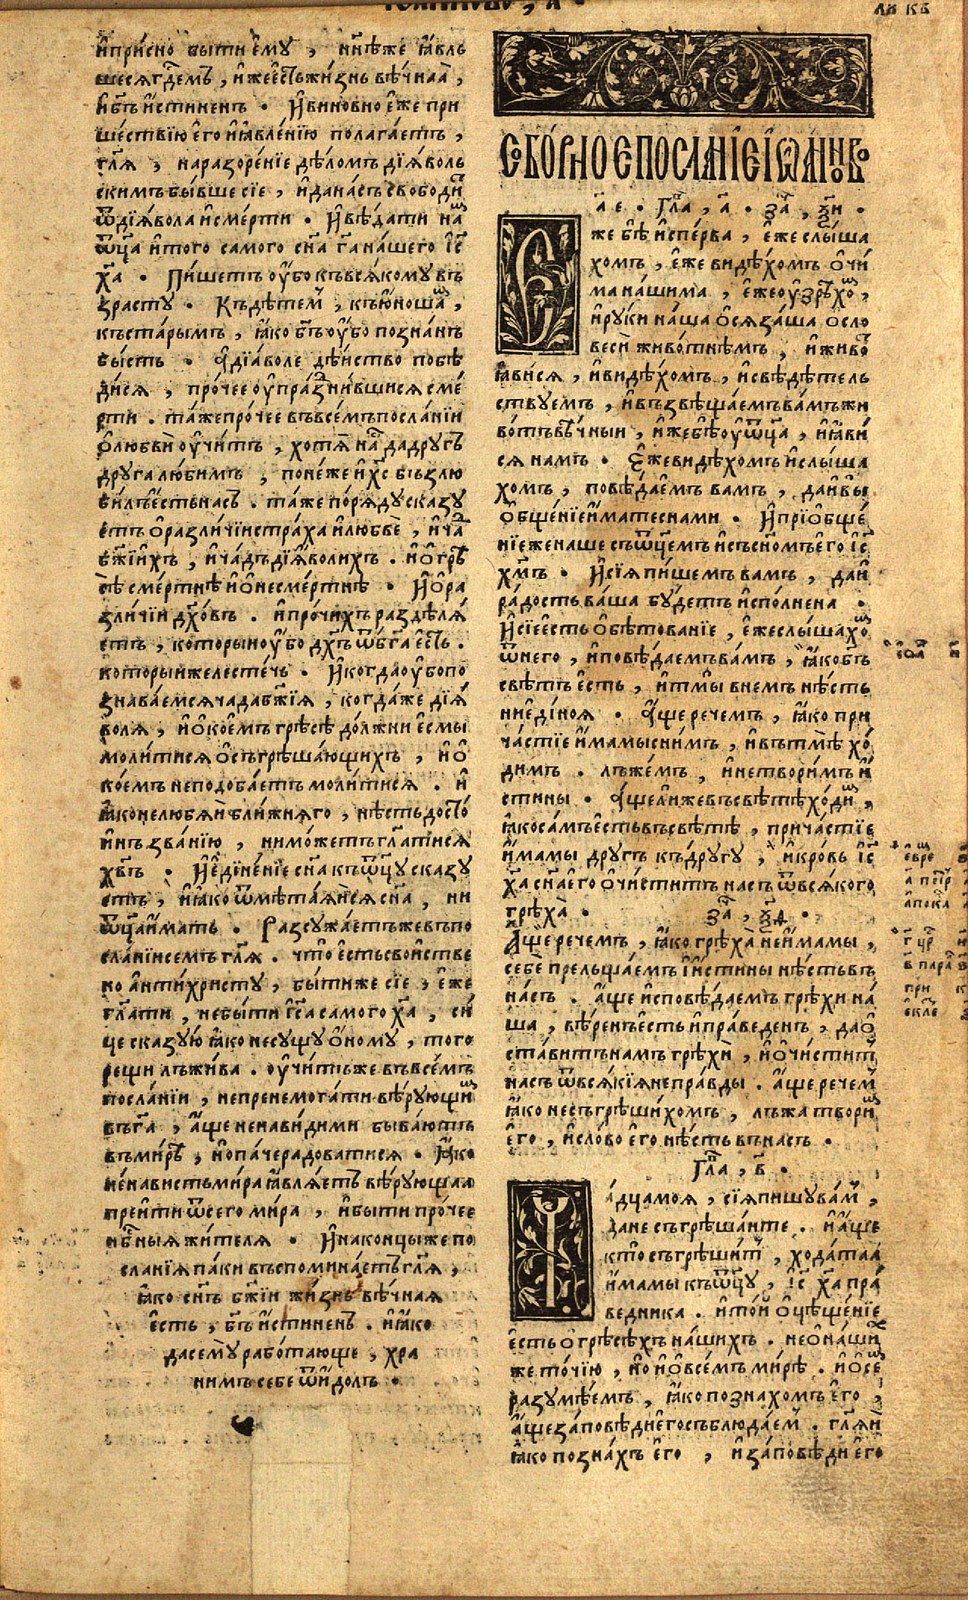 и҆при́сно бы́ти є҆мꙋ̀ , нн҃ѣже ꙗ҆вль
шесѧ гдⷭ҇емъ , и҆же є҆сть жи́знь вѣ́чнаа ,
и҆ бг҃ъ и҆́стиненъ . И҆ виновно є҆́же при
ше́ствїю є҆го̀ и҆ ꙗ҆вле́нїю полага́етъ ,
гл҃ѧ , на разоре́нїе дѣ́ломъ дїа́воль
скимъ бы́вше сїе , и҆ да на́съ свободи́тъ
ѿ дїа́вола и҆ сме́рти . И҆ вѣ́дати на́мъ
ѿц҃а и҆ того самого сн҃а г҃а на́шего і҆с҃
х҃а . Пи́шетъ оу҆́бо къ всѧ́комꙋ въ
зрастꙋ . Къ дѣ́темъ , къ ю҆́ношамъ ,
къ ста́рымъ , ꙗ҆́ко бг҃ъ оу҆́бо позна́нъ
бы́сть . а҆ дїа́воле дѣ́йство побѣ
ди́сѧ , про́чее оу҆праздни́вшисѧ сме́
рти . та́же про́чее въ все́мъ посла́нїи
ѡ҆ любвѝ оу҆чи́тъ , хотѧ̀ на́съ да дрꙋгъ
дрꙋ́га лю́бимъ , поне́же и҆ хс҃ възлю
би́лъ є҆сть на́съ . та́же по рѧ́дꙋ сказꙋ
етъ ѡ҆ разли́чїи стра́ха и҆ любвѐ , и҆ ча́дъ
бж҃їихъ , и҆ ча́дъ дїа́волихъ . и҆ ѡ҆ грѣ
сѣ́ сме́ртнѣ и҆ ѡ҆ несме́ртнѣ . И҆ ѡ҆ ра
зли́чїи дх҃о́въ . и҆ про́чихъ раздѣлѧ́
етъ , которыи оу҆́бо дх҃ъ ѿ бг҃а є҆сть .
который же лестечь . И҆ когда оу҆бо по
знава́емсѧ ча́да бж҃їѧ , когда́же дїѧ́
волѧ , и҆ ѡ҆ ко́емъ грѣсѣ̀ до́лжни є҆смы
моли́тисѧ ѡ҆ съгрѣша́ющихъ , и҆ ѡ҆
ко́емъ неподоба́етъ моли́тисѧ . и҆
ꙗ҆́ко не любѧ́й бли́жнѧго , нѣ́сть досто́
и҆нъ зва́нїю , ни мо́жетъ гл҃атисѧ
хв҃ъ . И҆ є҆дине́нїе сн҃а къ ѿц҃ꙋ сказꙋ
етъ , и҆ ꙗ҆́ко ѿмѣта́ѧйсѧ сн҃а , ни
ѿц҃а и҆́мать . Разсꙋжа́етъ же въ по
сла́нїи се́мъ гл҃ѧ . что̀ є҆сть свои́стве
но а҆нтїхри́стꙋ , бы́ти же сїе , є҆́же
гл҃ати , не бы́ти і҆с҃а самого х҃а , си́
це сказꙋ́ю ꙗ҆́ко не сꙋ́щꙋ ѻ҆́номꙋ , того
рещи лъжи́ва . оу҆чи́тъ же въ все́мъ
посла́нїи , не пренемога́ти вѣ́рꙋющимъ
въ г҃а , а҆́ще ненави́дими быва́ютъ
въ мирꙋ̀ , и҆ но па́че ра́доватисѧ . ꙗ҆́ко
не́нависть ми́ра ꙗ҆влѧ́етъ вѣ́рꙋющаѧ
прейти ѿ сего̀ ми́ра , и҆ бы́ти про́чее
нб҃ныѧ жи́телѧ . И҆ на коне́цы же по
сла́нїѧ па́ки въспомина́етъ гл҃ѧ ,
ꙗ҆́ко сн҃ъ бж҃їи жи́знь вѣ́чнаѧ
є҆сть , бг҃ъ и҆́стиненъ . и҆ ꙗ҆́ко
да семꙋ̀ рабо́тающе , хра
ни́мъ себе ѿ и҆́долъ .
Съборное посланїе іѡанново
а҃ е . Гл҃а , а҃ . за҃ , ѯ҃и .
Є҆́же бѣ̀ и҆спе́рва , є҆́же слы́ша
хомъ , є҆́же ви́дѣхомъ ѻ҆чи́
ма на́шима , є҆́же оу҆зрѣ́хомъ ,
и҆ рꙋ́ки на́ша ѡ҆сѧза́ша ѡ҆ сло
весѝ живо́тнѣмъ , и҆ живо́тъ
ꙗ҆ви́сѧ , и҆ ви́дѣхомъ , и҆ свѣдѣ́тель
ствꙋемъ , и҆ възвѣща́емъ ва́мъ жи
во́тъ вѣ́чныи , и҆́же бѣ̀ оу҆ ѿц҃а , и҆ ꙗ҆ви́
сѧ на́мъ . Є҆́же ви́дѣхомъ и҆ слы́ша
хомъ , повѣ́даемъ ва́мъ , да и҆ вы̀
ѻ҆бще́нїе и҆́мате с на́ми . И҆ прїѻбще́
нїе же на́ше съ ѿц҃емъ и҆ съ сн҃омъ є҆го̀ і҆с҃
хм҃ъ . И҆ сїѧ̀ пи́шемъ ва́мъ , да и҆
ра́дость ва́ша бꙋ́детъ и҆спо́лнена .
И҆ сїе є҆сть ѻ҆бѣтова́нїе , є҆́же слы́шахомъ
ѿ него , и҆ повѣ́даемъ ва́мъ , ꙗ҆́ко бг҃ъ
свѣ́тъ є҆сть , и҆ тмы̀ в не́мъ нѣ́сть
ни є҆ди́ноѧ . а҆́ще рече́мъ , ꙗ҆́ко при
ча́стїе и҆́мамы с ни́мъ , и҆ въ тмѣ̀ хо́
димъ . лъже́мъ , и҆ не твори́мъ и҆́
стины . а҆́ще ли же въ свѣ́тѣ хо́димъ ,
ꙗ҆́ко са́мъ є҆сть въ свѣ́тѣ , прича́стїе
и҆́мамы дрꙋ́гъ къ дрꙋ́гꙋ , и҆ кро́вь і҆с҃
х҃а сн҃а є҆го̀ ѻ҆чи́ститъ на́съ ѿ всѧ́кого
грѣха̀ . за҃ , ѯ҃д .
А҆́ще рече́мъ , ꙗ҆́ко грѣха̀ не и҆́мамы ,
себѐ прельща́емъ и҆ и҆́стины нѣ́сть въ
на́съ . а҆́ще и҆сповѣ́даемъ грѣхѝ на́
ша , вѣ́ренъ є҆сть и҆ пра́веденъ , да ѡ҆
ста́витъ на́мъ грѣхѝ , и҆ ѡ҆чи́ститъ
на́съ ѿ всѧ́кїѧ непра́вды . а҆́ще рече́мъ
ꙗ҆́ко не съгрѣши́хомъ , лъжа̀ твори́мъ
є҆го̀ , и҆ сло́во є҆го̀ нѣ́сть въ на́съ .
Гл҃а , в҃ .
а҆дца моѧ̀ , сїѧ̀ пишꙋ̀ ва́мъ ,
да не съгрѣша́ите . и҆ а҆́ще
кто̀ съгрѣши́тъ , хода́таа
и҆́мамы къ ѿц҃ꙋ , і҆с҃ х҃а пра́
ведника . и҆ то́й ѻ҆цѣще́нїе
є҆сть ѡ҆ грѣсѣ́хъ на́шихъ . не ѡ҆ на́шихъ
же то́чїю , но и҆ ѡ҆ все́мъ ми́рѣ . и҆ ѡ҆ се́мъ
разꙋмѣ́емъ , ꙗ҆́ко позна́хомъ є҆го̀ ,
а҆́ще за́повѣди є҆го̀ съблюда́емъ . гл҃ѧи
ꙗ҆́ко позна́хъ є҆го̀ , и҆ за́повѣди є҆го̀